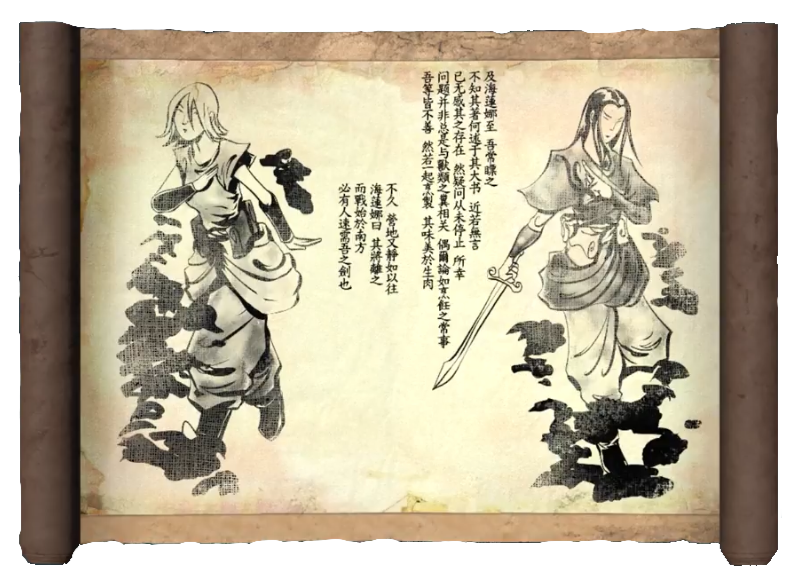 及海蓮娜至 吾常瞟之
不知其著何述于其大书 近若無言
已无感其之存在 然疑问从未停止 所幸
问题并非总是与獸類之異相关 偶爾論如烹飪之常事
吾等皆不善 然若一起烹製 其味美於生肉
不久 營地又靜如以往
海蓮娜曰 其將離之
而戰始於南方
必有人速需吾之劍也